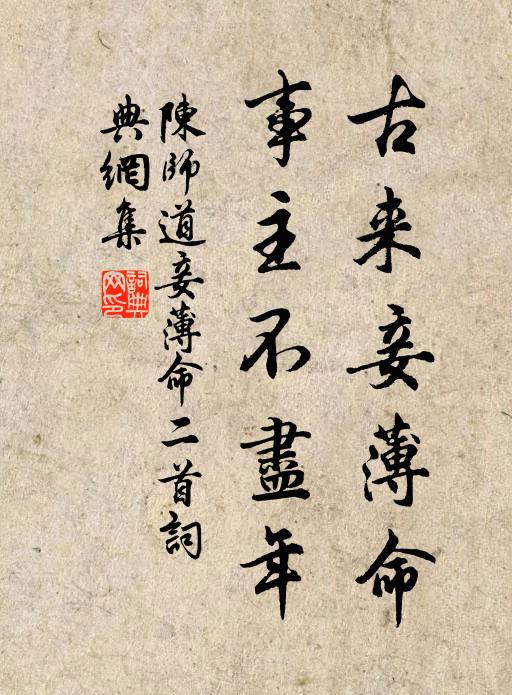 古来妾薄命
事主不盡年
陳師道妾薄命二首詞
典網集
詞典
网印